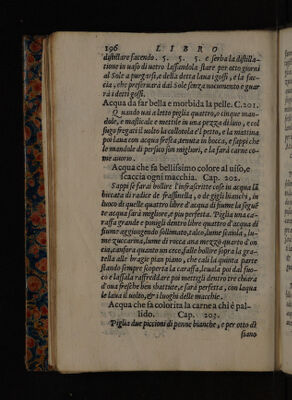 196 LIBRO
distillare facendo. §. §. §. e serba la distilla-
tione in vaso di vetro lassandola stare per otto giorni
al Sole a purgarsi, e della detta lava i gossi, e la fac-
cia, che preservarà dai Sole senza nocumento e guar
rà i detti gossi.
Acqua da far bella e morbida la pelle. C. 201.
Quando vai a letto piglia quattro, o cinque man-
dole, e masticale e mettile in una pezza di lino, e col
sugo fregati il volto la collotola e'l petto, e la mattina
poi lava con acqua fresca tenuta in bocca, e sappi che
le mandole di persico son migliori, e la farà carne co-
me avorio.
Acqua che fa bellissimo colore al viso, e
scaccia ogni macchia. Cap. 202.
Sappi se farai bollire l'infrascritte cose in acqua lā
biccata di radice de frassinella, o de gigli bianchi, in
luoco di quelle quattro libre d'acqua di fiume la segué
te acqua sarà megliore, e piu perfetta. Piglia una ca-
raffa grande e ponigli dentro libre quattro d'acqua di
fiume aggiungendo sollimato, talco, lume scaiola, lu-
me zuccarina, lume di rocca ana mezzo quarto d'on
cia, canfora quanto un cece, falle bollire sopra la gra-
tella alle bragie pian piano, che cali la quinta parte
stando sempre scoperta la caraffa, levala poi dal fuo-
co e lassala raffreddare poi mettegli dentro tre chiara
d'ova fresche ben sbattute, e sarà perfetta, con laqua
le lava il volto, & i luoghi delle macchie.
Acqua che fa colorita la carne a chi è pal-
lido. Cap. 203.
Piglia due piccioni di penne bianche, e per otto dì
siano